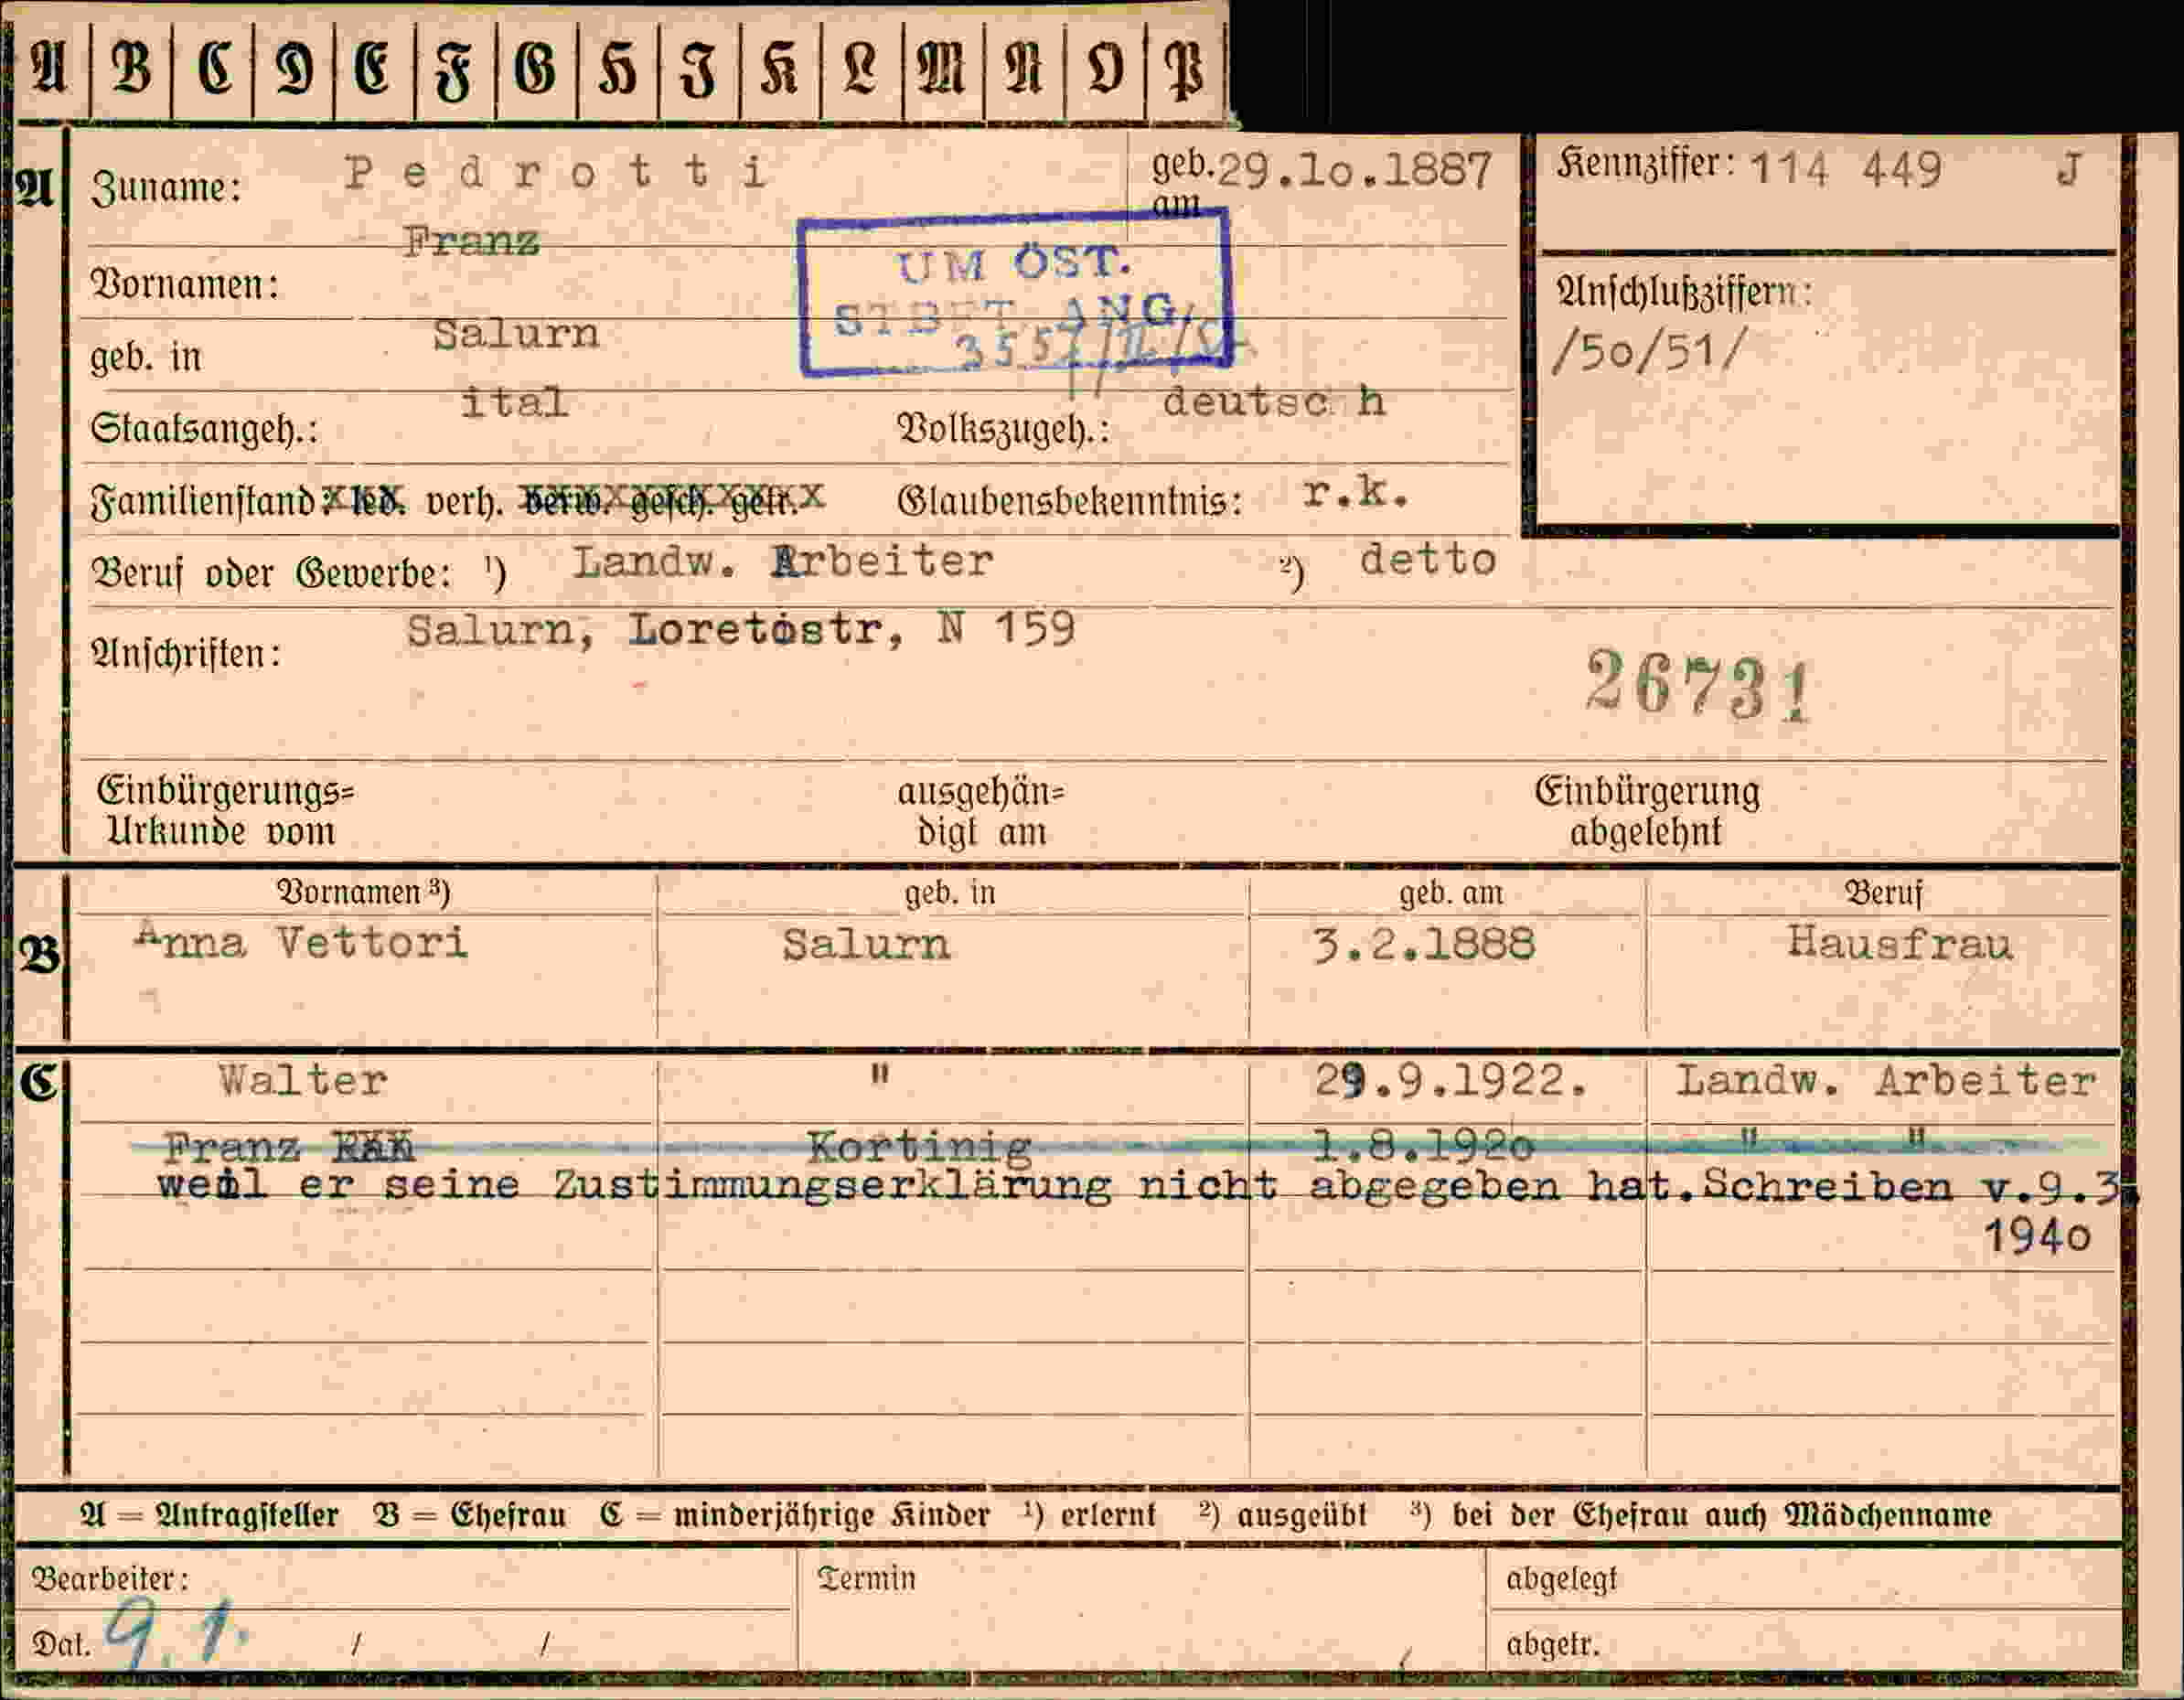 A B C D E F G H I K L M N O P
A Zuname: Pedrotti geb. am 29.10.1887 Kennziffer: 114 449 J
Vornamen: Franz
UM ÖST.
geb. in Salurn
Anschlußziffern:
/50/51/
Staatsangeh.: ital Volkszugeh.: deutsc h
Familienstand: led. verh. verw. gesch. getr. Glaubensbekenntnis: r.k.
Beruf oder Gewerbe: ¹) Landw. Arbeiter ²) detto
Anschriften: Salurn, Loretostr, N 159
26731
Einbürgerungs= ausgehän= Einbürgerung
Urkunde vom digt am abgelehnt
Vornamen ³) geb. in geb. am Beruf
B Anna Vettori Salurn 3.2.1888 Hausfrau
C Walter " 29.9.1922. Landw. Arbeiter
Franz Kortinig 1.8.1920 " "
weil er seine Zustimmungserklärung nicht abgegeben hat.Schreiben v.9.3.
1940
A = Antragsteller B = Ehefrau C = minderjährige Kinder ¹) erlernt ²) ausgeübt ³) bei der Ehefrau auch Mädchenname
Bearbeiter: Termin abgelegt
Dat. 9.1. / / abgetr.